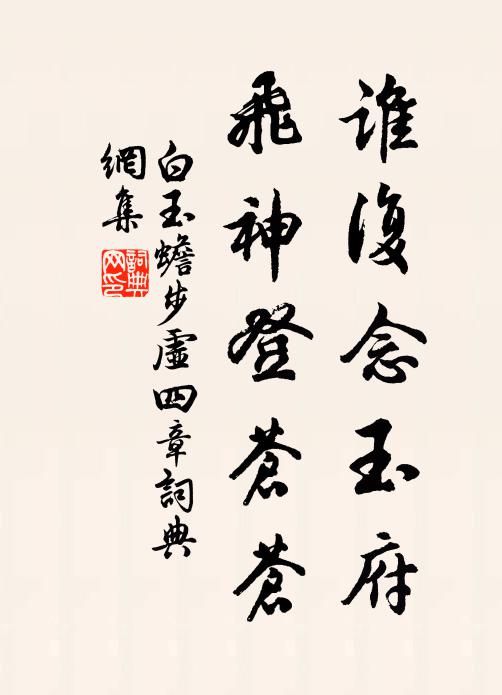 誰復念玉府
飛神登蒼蒼
白玉蟾步虛四章詞典
網集
詞典网印